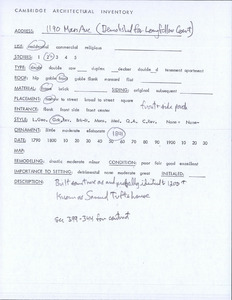 CAMBRIDGE ARCHITECTURAL INVENTORY
ADDRESS: 1190 Mass Ave (Demolished for Longfellow Court)
USE: residential commercial religious
STORIES: 1 2½ 3 4 5
TYPE: single double row duplex decker double d tenement apartment
ROOF: hip gable gable flank mansard flat
MATERIAL: wood brick SIDING: original subsequent
PLACEMENT: to street broad to street square
ENTRANCE: flank front side front center
STYLE:
ORNAMENT: little moderate elaborate
DATE: 1790 1810 20 30 40 50 60 70 80 90 1900 10 20 30
MAP:
REMODELING: drastic moderate minor CONDITION: poor fair good excellent
IMPORTANCE TO SETTING: detrimental none moderate great INITIALED:
DESCRIPTION: Built same time as and probably identical to 1200
Known as Samuel Tufts house
for contract